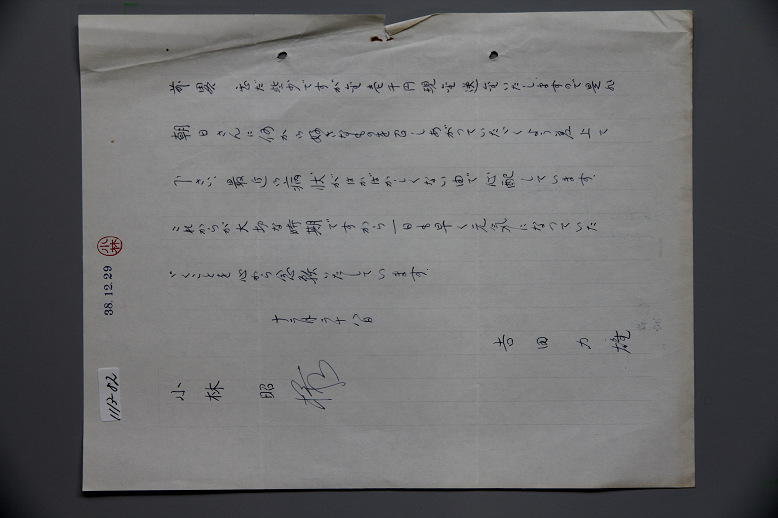 前略 甚だ些少ですが金壱千円現金送金いたしますので是非
朝日さんに何か好きなものを召しあがっていただくよう差上て
下さい 最近の病状がはかばかしくない由で心配しています.
これからが大切な時期ですから一日も早く元気になっていた
だくことを心から念願いたしています.
十二月二十八日
吉田力雄
小林 昭 様
38.12.29
小林